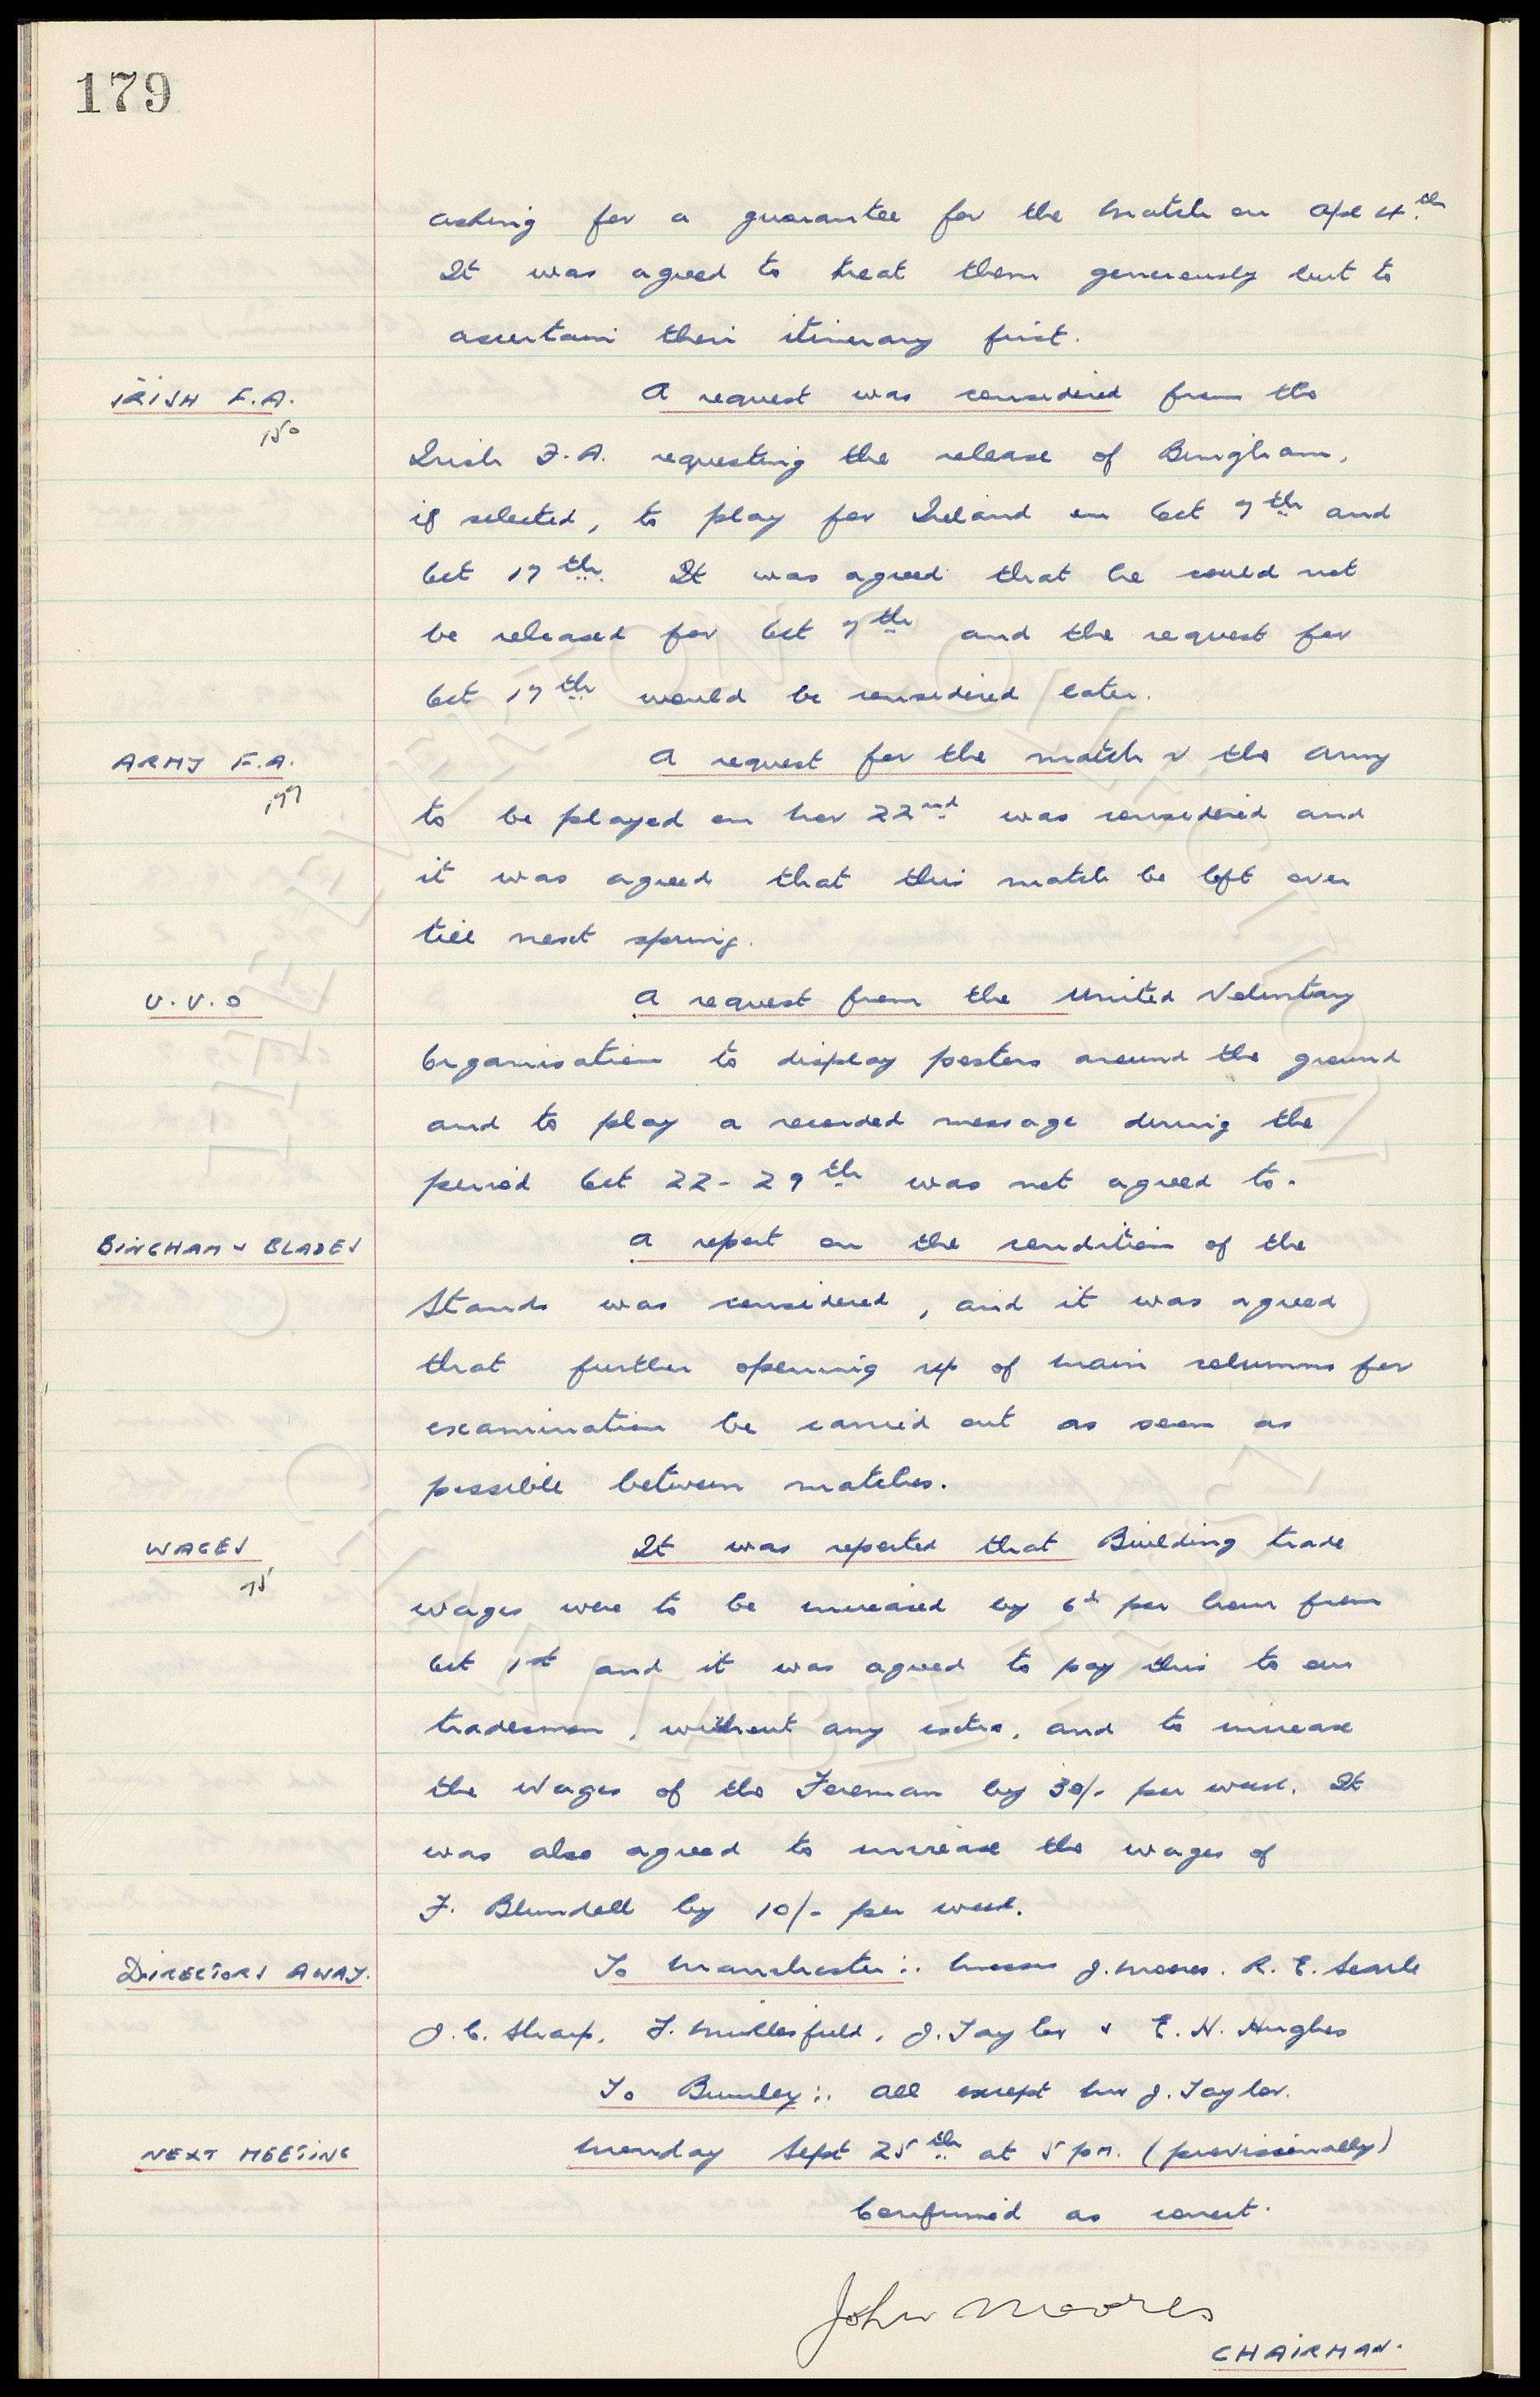 179
asking for a guarantee for the match on Apl 4th.
It was agreed to treat them generously but to
ascertain their itinerary first.
IRISH F.A.
150
A request was considered from the
Irish F.A. requesting the release of Bingham,
if selected, to play for Ireland on Oct 7th and
Oct 17th. It was agreed that he could not
be released for Oct 7th and the request for
Oct 17th would be considered later.
ARMY F.A.
177
A request for the match v the Army
to be played on Nov 22nd was considered and
it was agreed that this match be left over
till next spring.
U.V.O
A request from the United Voluntary
Organisation to display posters around the ground
and to play a recorded message during the
period Oct 22-29th was not agreed to.
BINGHAM & BLADES
A report on the condition of the
Stands was considered, and it was agreed
that further opening up of main columns for
examination be carried out as soon as
possible between matches.
WAGES
75
It was reported that Building trade
wages were to be increased by 6d per hour from
Oct 1st and it was agreed to pay this to our
tradesmen, without any extra, and to increase
the wages of the Foreman by 30/- per week. It
was also agreed to increase the wages of
F. Blundell by 10/- per week.
DIRECTORS AWAY.
To Manchester:. Messrs J. Moores. R. E. Searle
J.C. Sharp, F. Micklesfield, J. Taylor & E. H. Hughes
To Burnley:. All except Mr J. Taylor.
NEXT MEETING
Monday Sept 25th at 5 pm. (provisionally)
Confirmed as correct.
John Moores
CHAIRMAN.